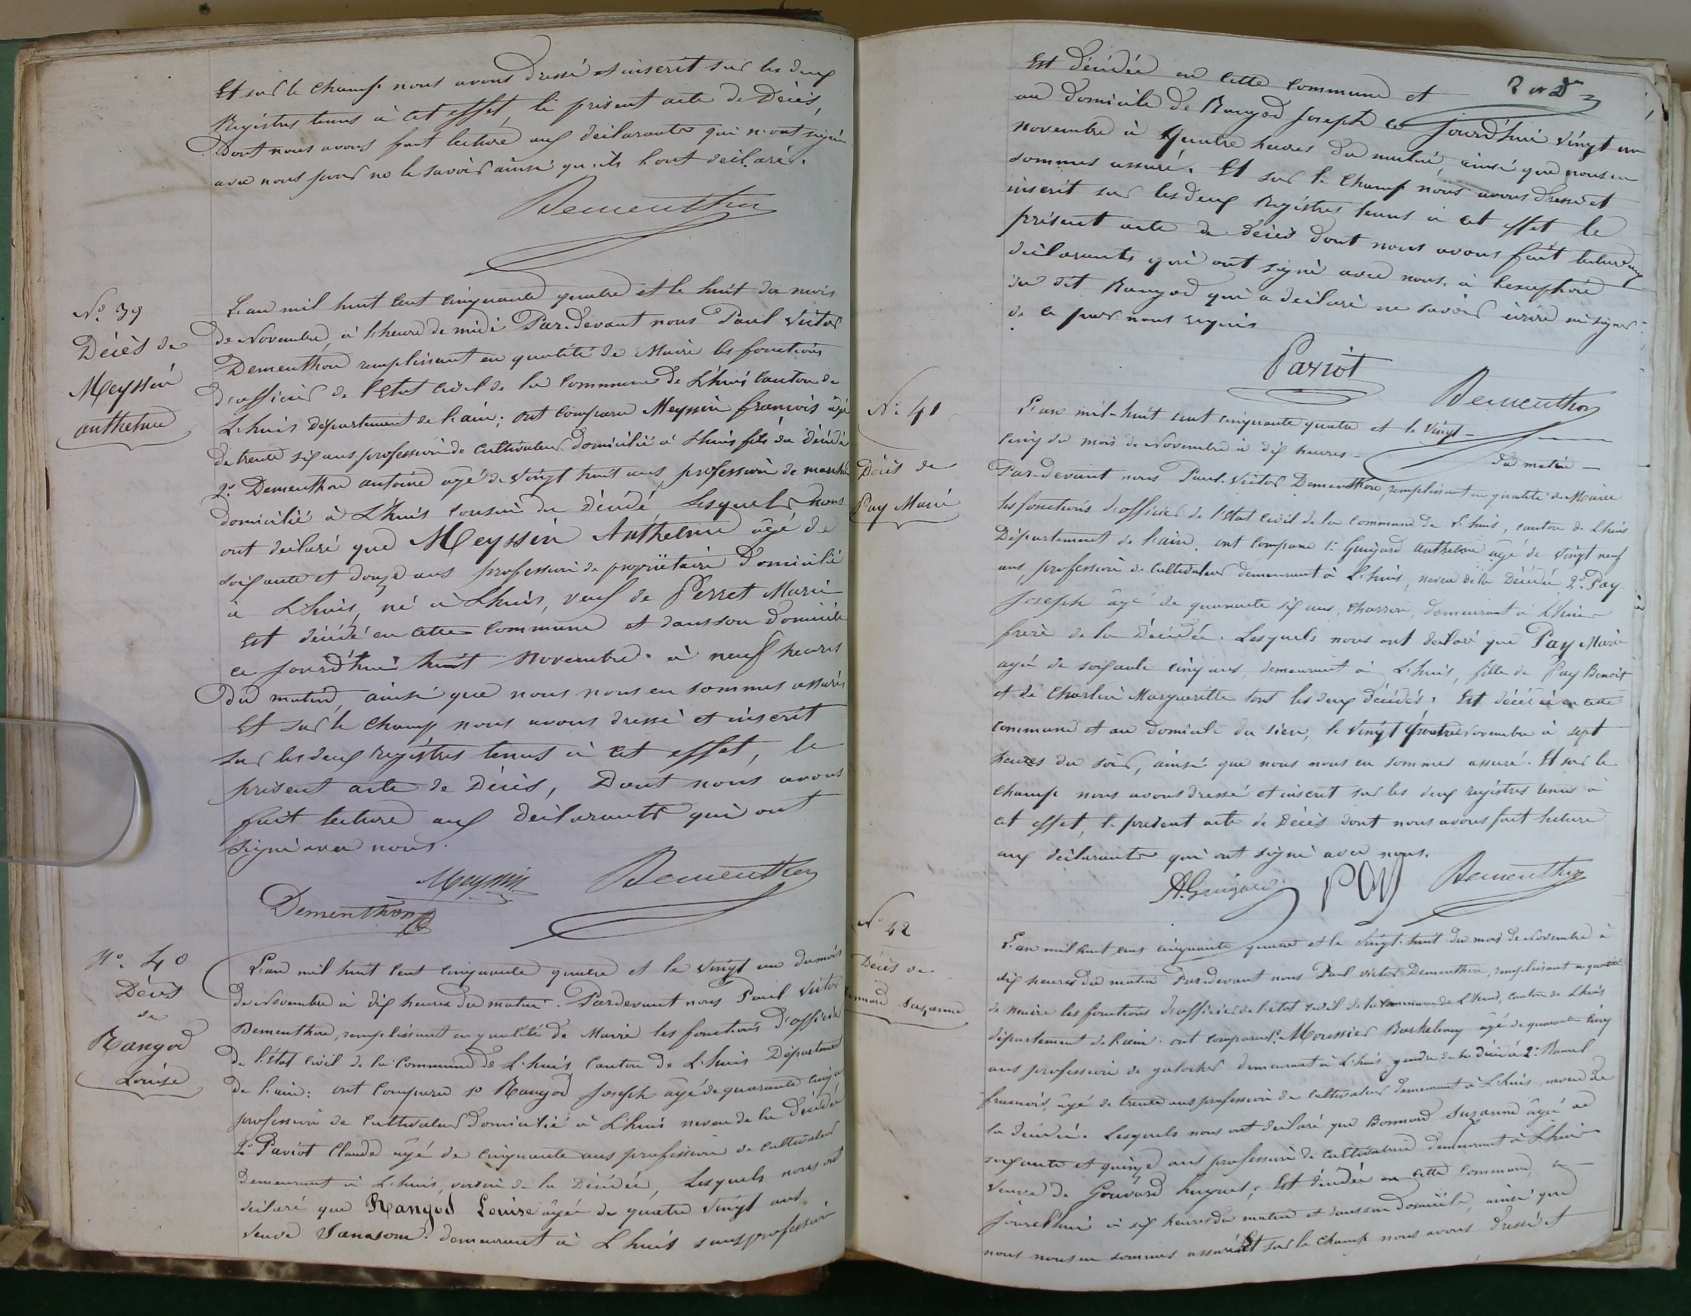 Et sur le champ nous avons dressé et inscrit sur les deux
Registres tenus à cet effet, le présent acte de Décès,
Dont nous avons fait lecture aux déclarants qui n'ont signé
avec nous pour ne le savoir ainsi qu'ils l'ont déclaré.
Dementhon
No. 39
Décès de
Meyssin
anthelme
L'an mil huit cent cinquante quatre et le huit du mois
de Novembre, à l'heure de midi Par-devant nous Paul Victor
Dementhon remplissant en qualité de Maire les fonctions
d'officier de l'Etat civil de la Commune de L'huis Canton de
L'huis département de l'ain; ont comparu Meyssin françois âgé
de trente six ans profession de cultivateur domicilié à L'huis fils du décédé
2o Dementhon antoine agé de vingt huit ans, profession de
domicilié à L'huis cousin du Décédé, Lesquels nous
ont déclaré que Meyssin Anthelme âgé de
soixante et douze ans profession de propriétaire Domicilié
à L'huis, né à L'huis, veuf de Perret Marie
Est décédé en cette commune et dans son domicile
ce jourd'hui huit Novembre à neuf heures
du matin, ainsi que nous nous en sommes assuré
Et sur le champ nous avons dressé et inscrit
sur les deux registres tenus à cet effet, le
présent acte de Décès, Dont nous avons
fait lecture aux déclarants qui ont
signé avec nous.
Meyssin Dementhon
Dementhon
No. 40
Décès
de
Rangod
Louise
L'an mil huit cent cinquante quatre et le vingt un du mois
de Novembre à dix heures du matin. Pardevant nous Paul Victor
Dementhon, remplissant en qualité de Maire les fonctions d'officier
de l'état civil de la Commune de L'huis Canton de L'huis Département
de l'ain: ont comparu 1o Rangod Joseph âgé de quarante cinq ans
profession de cultivateur domicilié à L'huis neveu de la Décédée
2o Pariot Claude âgé de cinquante ans profession de cultivateur
demeurant à L'huis, voisin de la Décédée, Lesquels nous ont
déclaré que Rangod Louise âgée de quatre vingt ans,
veuve demeurant à L'huis sans profession
Est décédée en cette Commune et
au domicile de Rangod Joseph ce jourd'hui vingt un
novembre à quatre heures du matin, ainsi que nous en
sommes assuré. Et sur le Champ nous avons dressé et
inscrit sur les deux Registres tenus à cet effet le
présent acte de décès dont nous avons fait lecture aux
déclarants qui ont signé avec nous, à l'exception
du dit Rangod qui a déclaré ne savoir écrire ni signer
de ce par nous requis
Pariot
Dementhon
No. 41
Décès de
Pay Marie
L'an mil-huit cent cinquante quatre et le vingt
cinq du mois de Novembre à dix heures du matin
Par-devant nous Paul-Victor Dementhon, remplissant en qualité de Maire
les fonctions d'officier de l'état civil de la Commune de L'huis, canton de L'huis
Département de l'ain. ont comparu 1o Guigard anthelme âgé de vingt neuf
ans, profession de cultivateur demeurant à L'huis, neveu de la Décédée 2o Pay
Joseph âgé de quarante six ans, charron, demeurant à L'huis
frère de la Décédée. Lesquels nous ont déclaré que Pay Marie
agée de soixante cinq ans, demeurant à L'huis, fille de Pay Benoit
et de Charlin Marguerite tous les deux décédés; Est décédée en cette
commune et au domicile du sieur, le vingt quatre Novembre à sept
heures du soir, ainsi que nous nous en sommes assuré. Et sur le
champ nous avons dressé et inscrit sur les deux registres tenus à
cet effet, le présent acte de Décès dont nous avons fait lecture
aux déclarants qui ont signé avec nous.
A. Guigard PAY Dementhon
No 42
Décès de
Bonnard Suzanne
L'an mil huit cent cinquante quatre et le vingt-huit du mois de Novembre à
dix heures du matin Pardevant nous Paul Victor Dementhon, remplissant en qualité
de Maire les fonctions d'officier de l'état civil de la Commune de L'huis, canton de L'huis
département de l'ain. ont comparu 1o Moussier Barthelemy âgé de quarante cinq
ans profession de galocher demeurant à L'huis gendre de la décédée 2o
françois, âgé de trente ans profession de cultivateur demeurant à L'huis neveu de
la décédée. Lesquels nous ont déclaré que Bonnard Suzanne âgée de
soixante et quinze ans profession de cultivatrice demeurant à L'huis
veuve de Hugues; Est décédée en cette Commune, ce
jourd'hui à six heures du matin et dans son domicile, ainsi que
nous nous en sommes assuré Et sur le champ nous avons dressé et